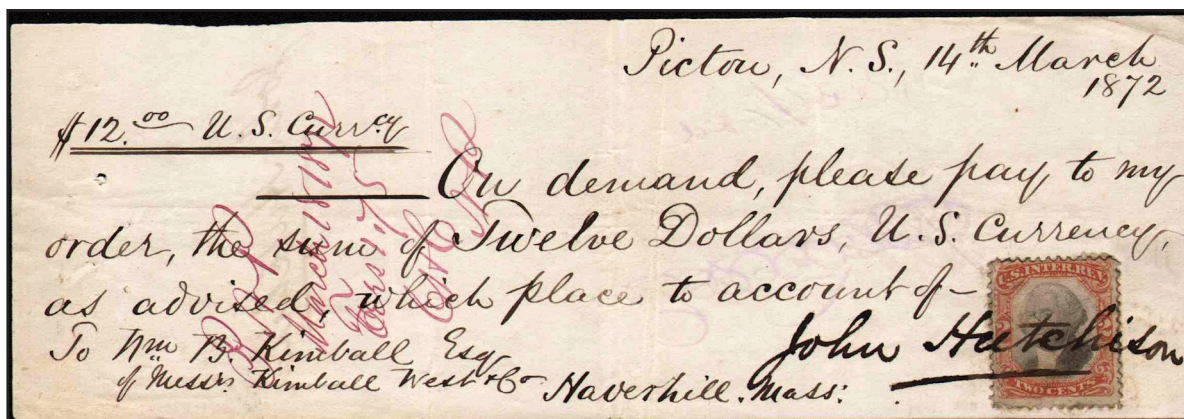 Pictou, N.S., 14th March
1872
$12.00 U.S. Curr.cy
On demand, please pay to my
order, the sum of Twelve Dollars, U.S. Currency,
as advised, which place to account of—
John Hutchison
To Wm B. Kimball Esq
of Messrs Kimball West & Co Haverhill. Mass:
March 18 1872
U.S. INTER. REV.
TWO CENTS